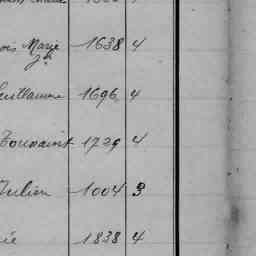 ois Marie 1638 4
Guillaume 1696 4
Toussaint 1729 4
Julien 1004 3
ié 1838 4